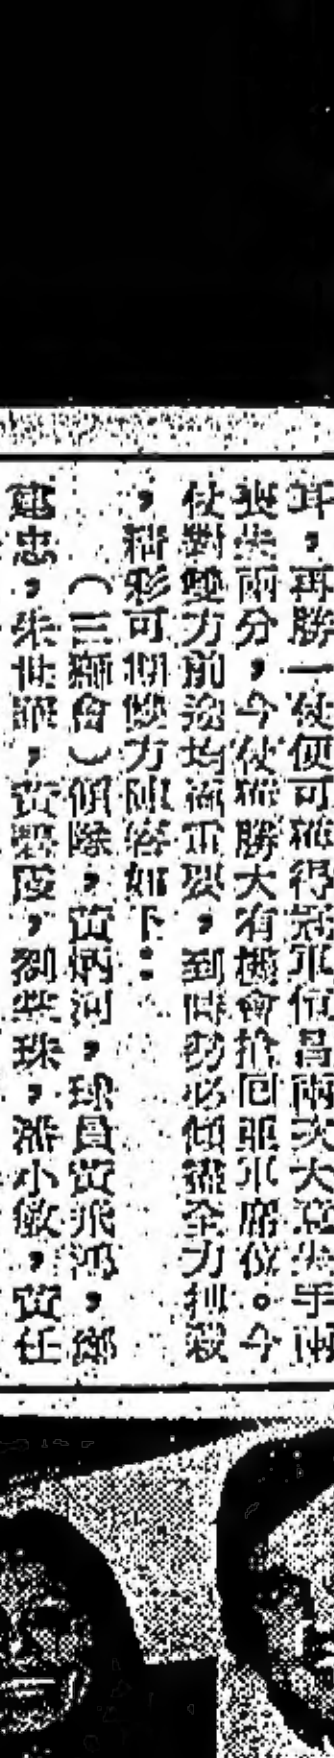 耳，再勝一仗便可穩得冠軍位昌兩次大意失手兩
喪失兩分，今仗穩勝大有機會搶回亞軍席位。今
仗對雙力前途均甚重要，到時勢必傾盡全力拼殺
，精彩可期雙方陣容如下：
（三獅會）領隊，黃炳河，球員黃飛鴻，鄧
建忠，朱世華，黃碧霞，劉柴珠，潘小敏，黃任